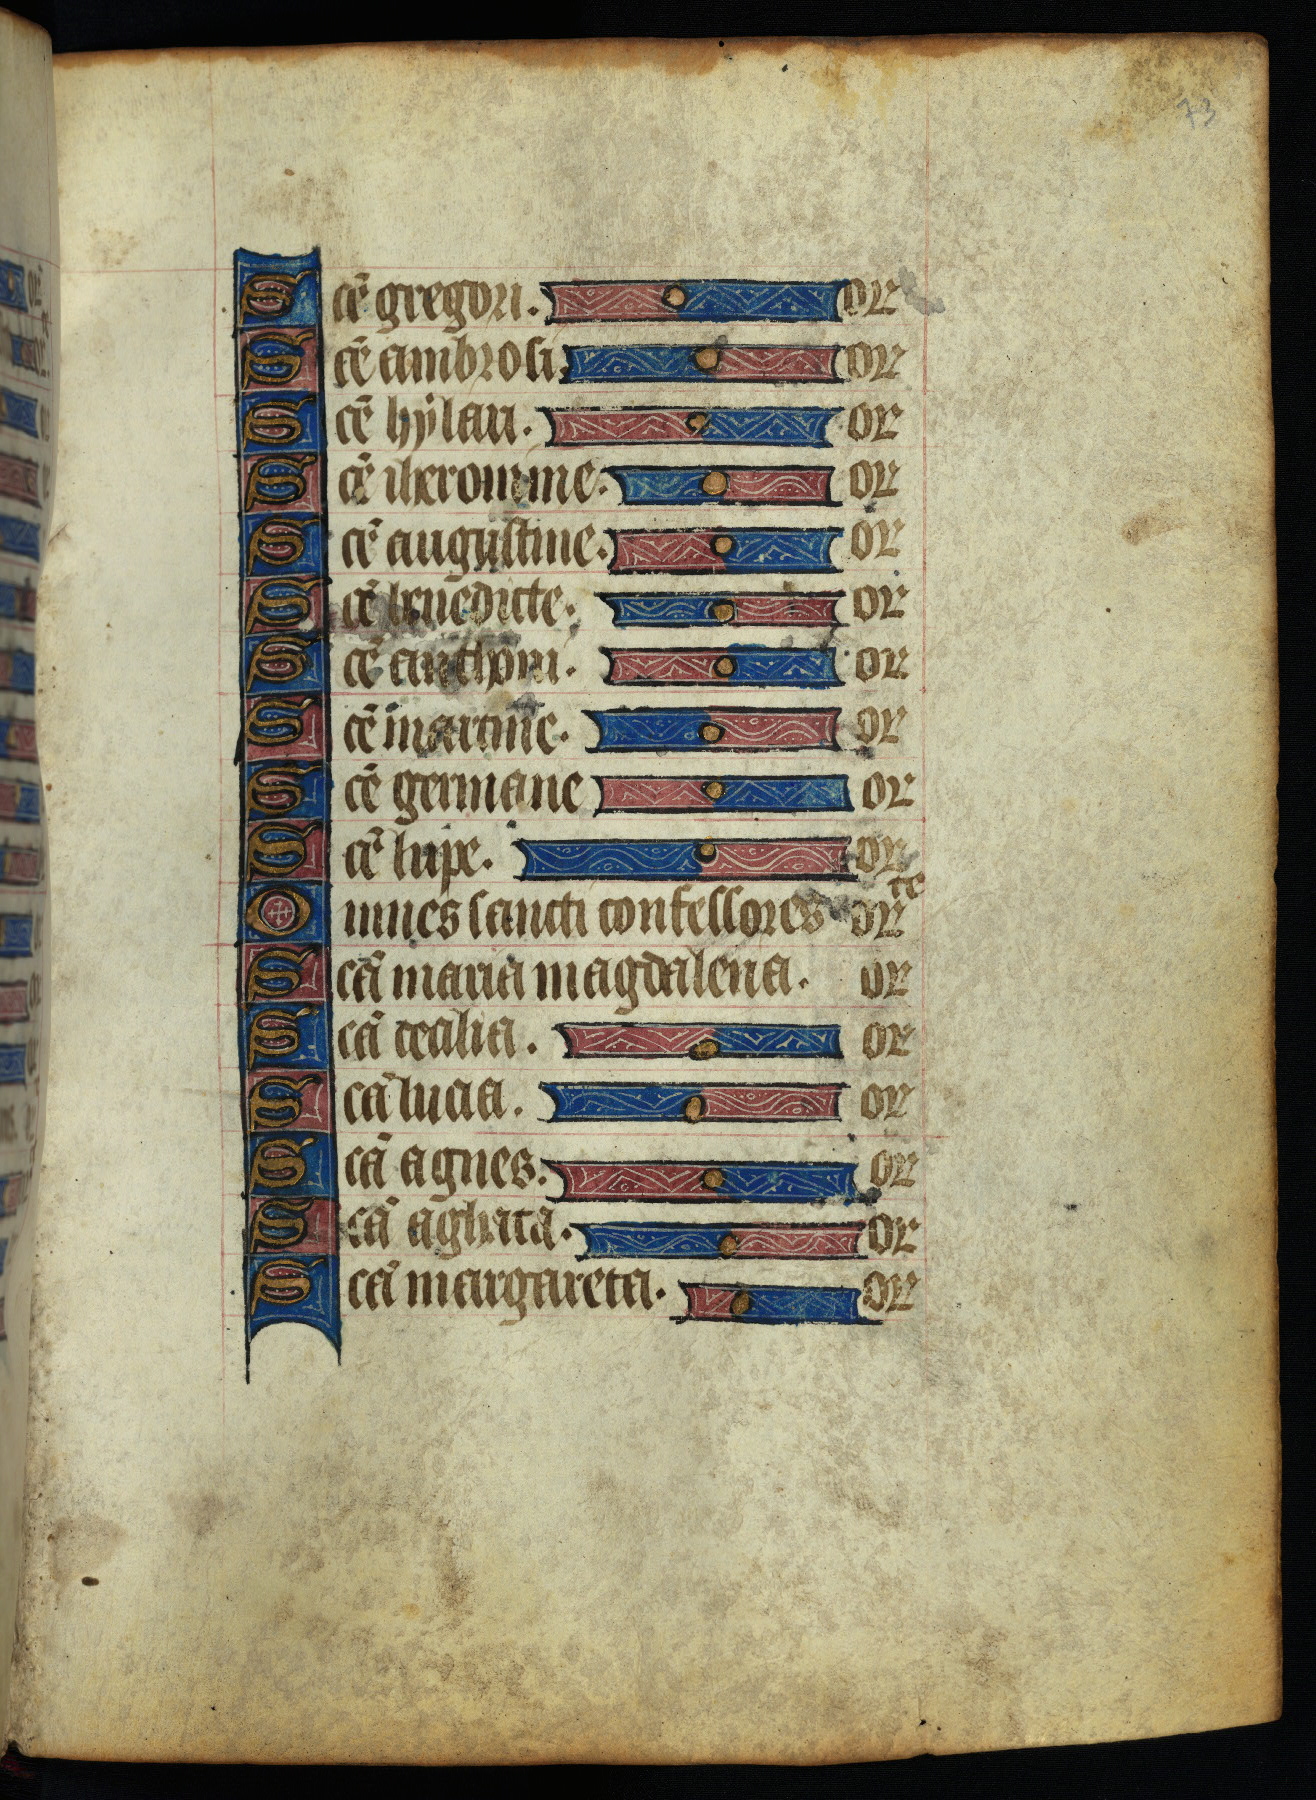 73
Scē gregori. or
Scē ambrosi. or
Scē hẏlari. or
Scē iheronime. or
Scē augustine. or
Scē benedicte. or
Scē anthoni. or
Scē martine. or
Scē germane or
Scē lupe. or
te
Omnes sancti confessores or
Scā maria magdalena. or
Scā cecilia. or
Scā lucia. or
Scā agnes. or
Scā aghata. or
Scā margareta. or